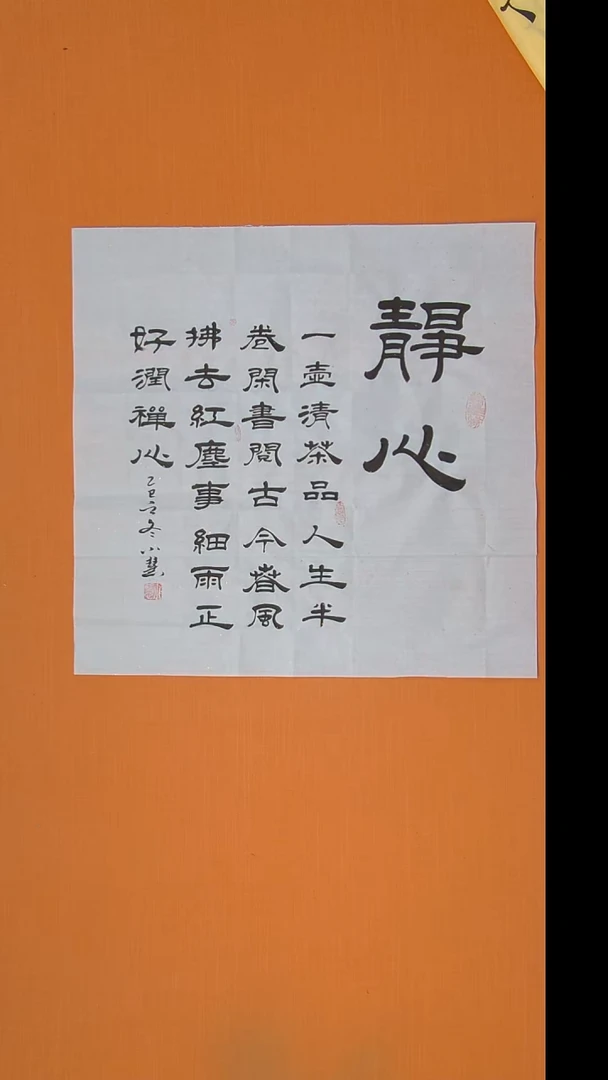 靜心
一壺清茶品人生半
卷閑書閱古今春風
拂去紅塵事細雨正
好潤禪心
乙巳立冬小慧